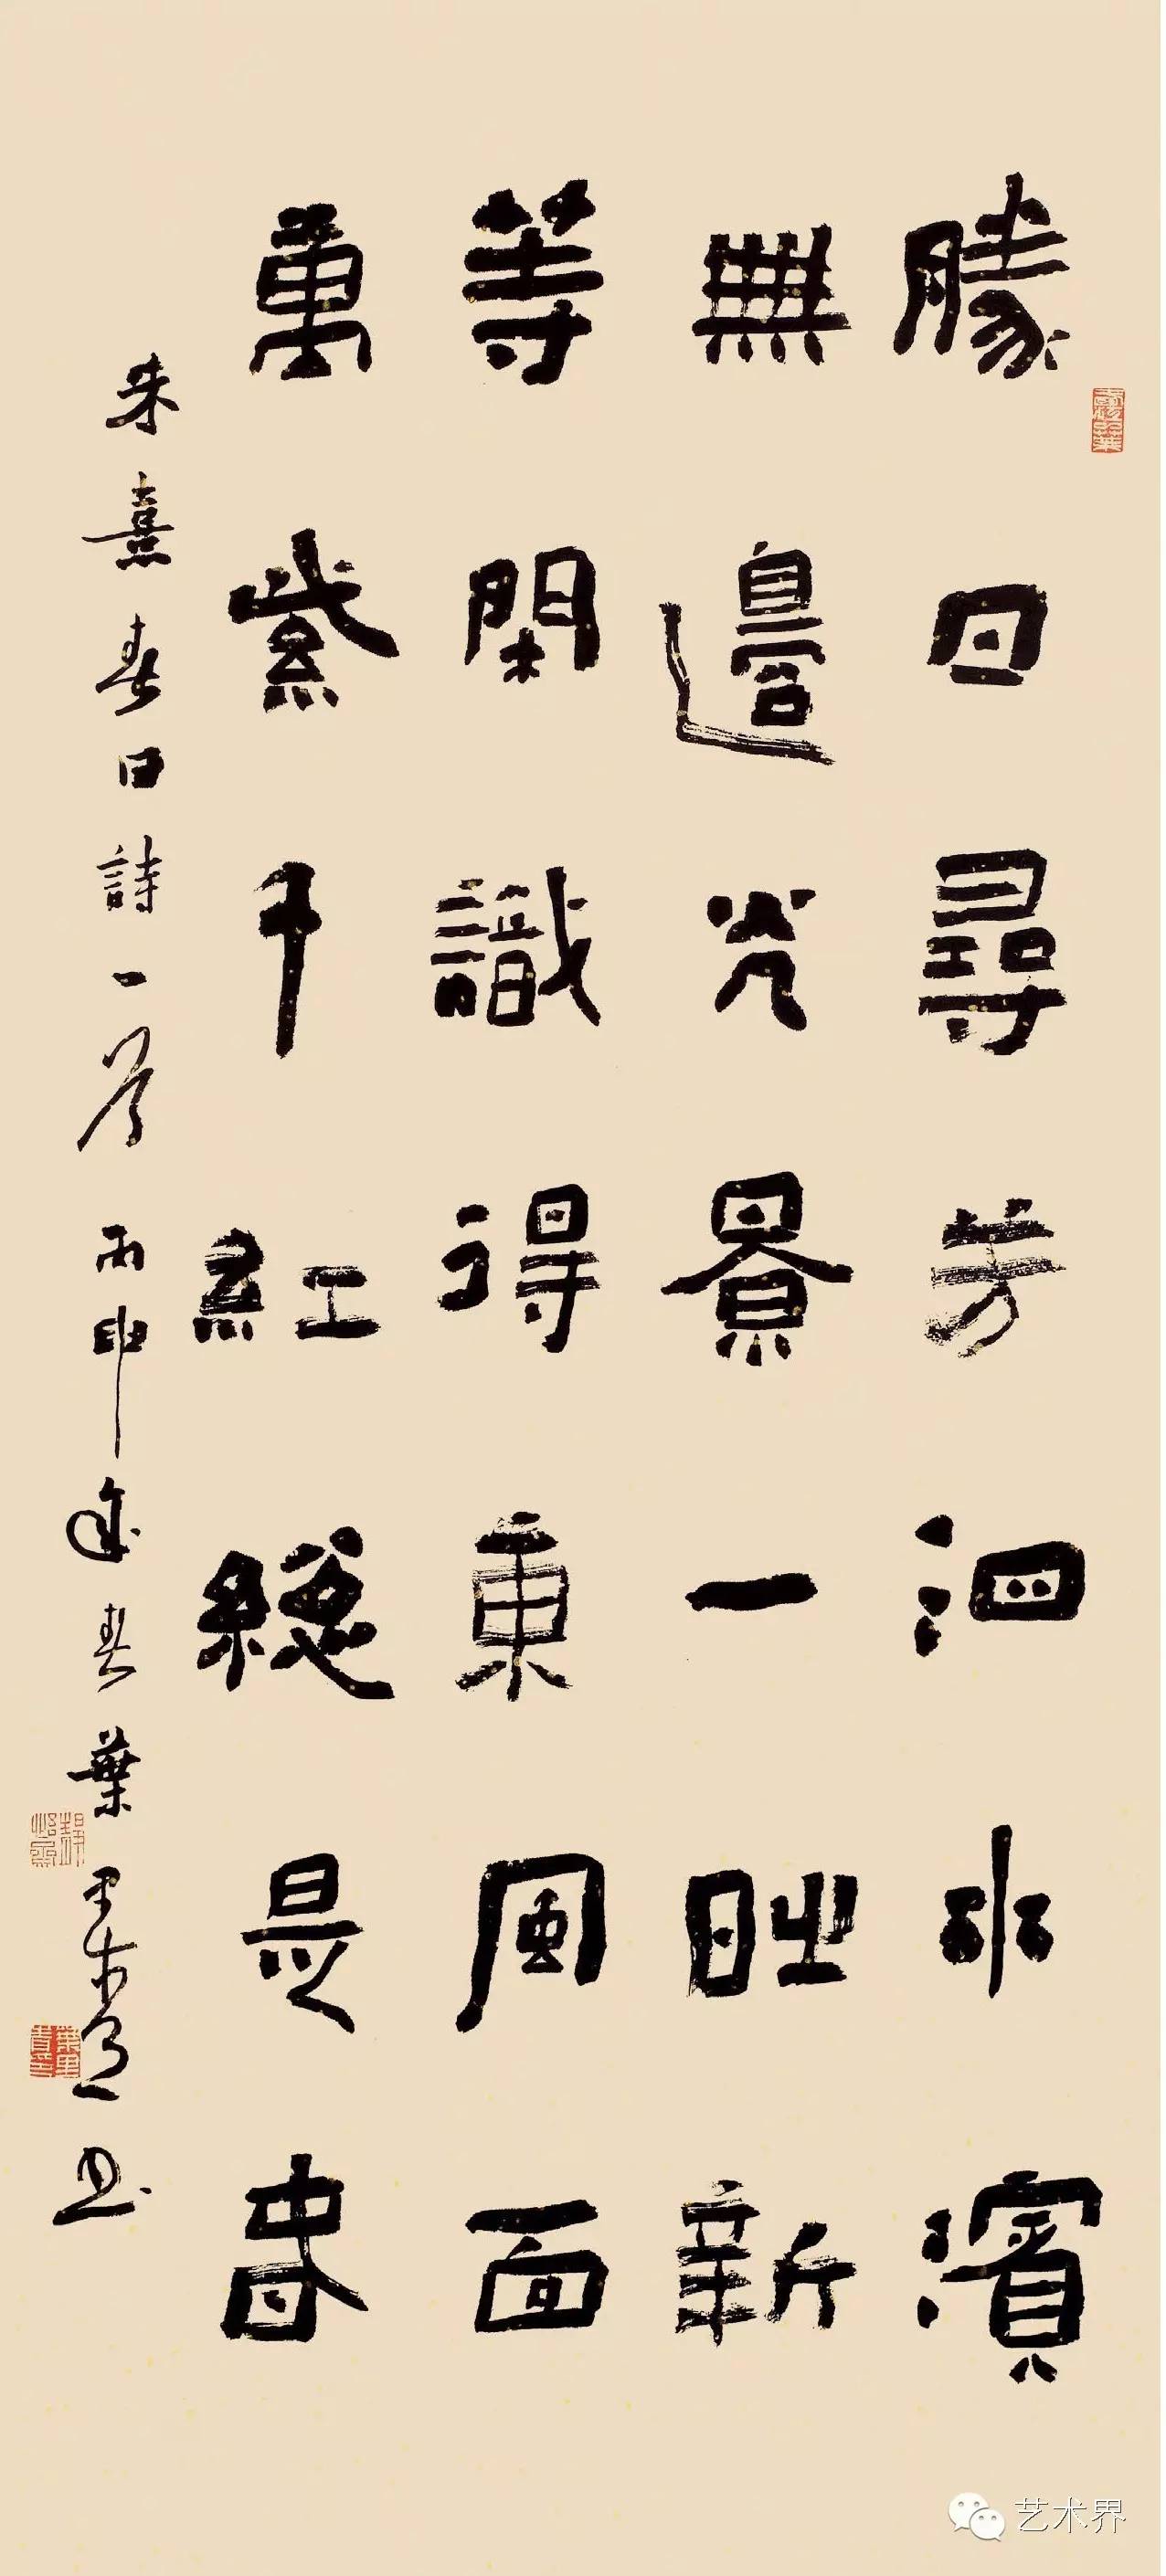 勝日尋芳泗水濱
無邊光景一時新
等閑識得東風面
萬紫千紅總是春
朱熹春日詩一首 丙申年春葉 書
艺术界